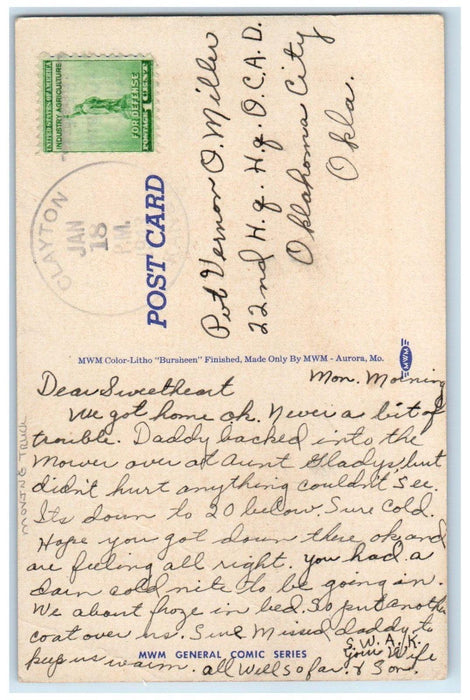 UNITED STATES OF AMERICA
INDUSTRY AGRICULTURE
FOR DEFENSE
POSTAGE 1 CENT
CLAYTON
JAN
18
P.M.
POST CARD
Pvt Vernon O. Miller
22nd H.q. H.q. O.C.A.D.
Oklahoma City
Okla.
MWM Color-Litho "Bursheen" Finished, Made Only By MWM - Aurora, Mo.
MWM
Dear Sweetheart Mon. Morning
We got home ok. Never a bit of
trouble. Daddy backed into the
Mower over at Aunt Gladys, but
didn't hurt anything couldn't see.
Its down to 20 below. Sure cold.
Hope you got down there ok and
are feeling all right. you had a
darn cold nite to be going in.
We about froze in bed. So put another
coat over us. Sure Missed daddy to
keep us warm. all Well so far. S.W.A.K.
your Wife
& Son.
MWM GENERAL COMIC SERIES
MOVING TRUCK